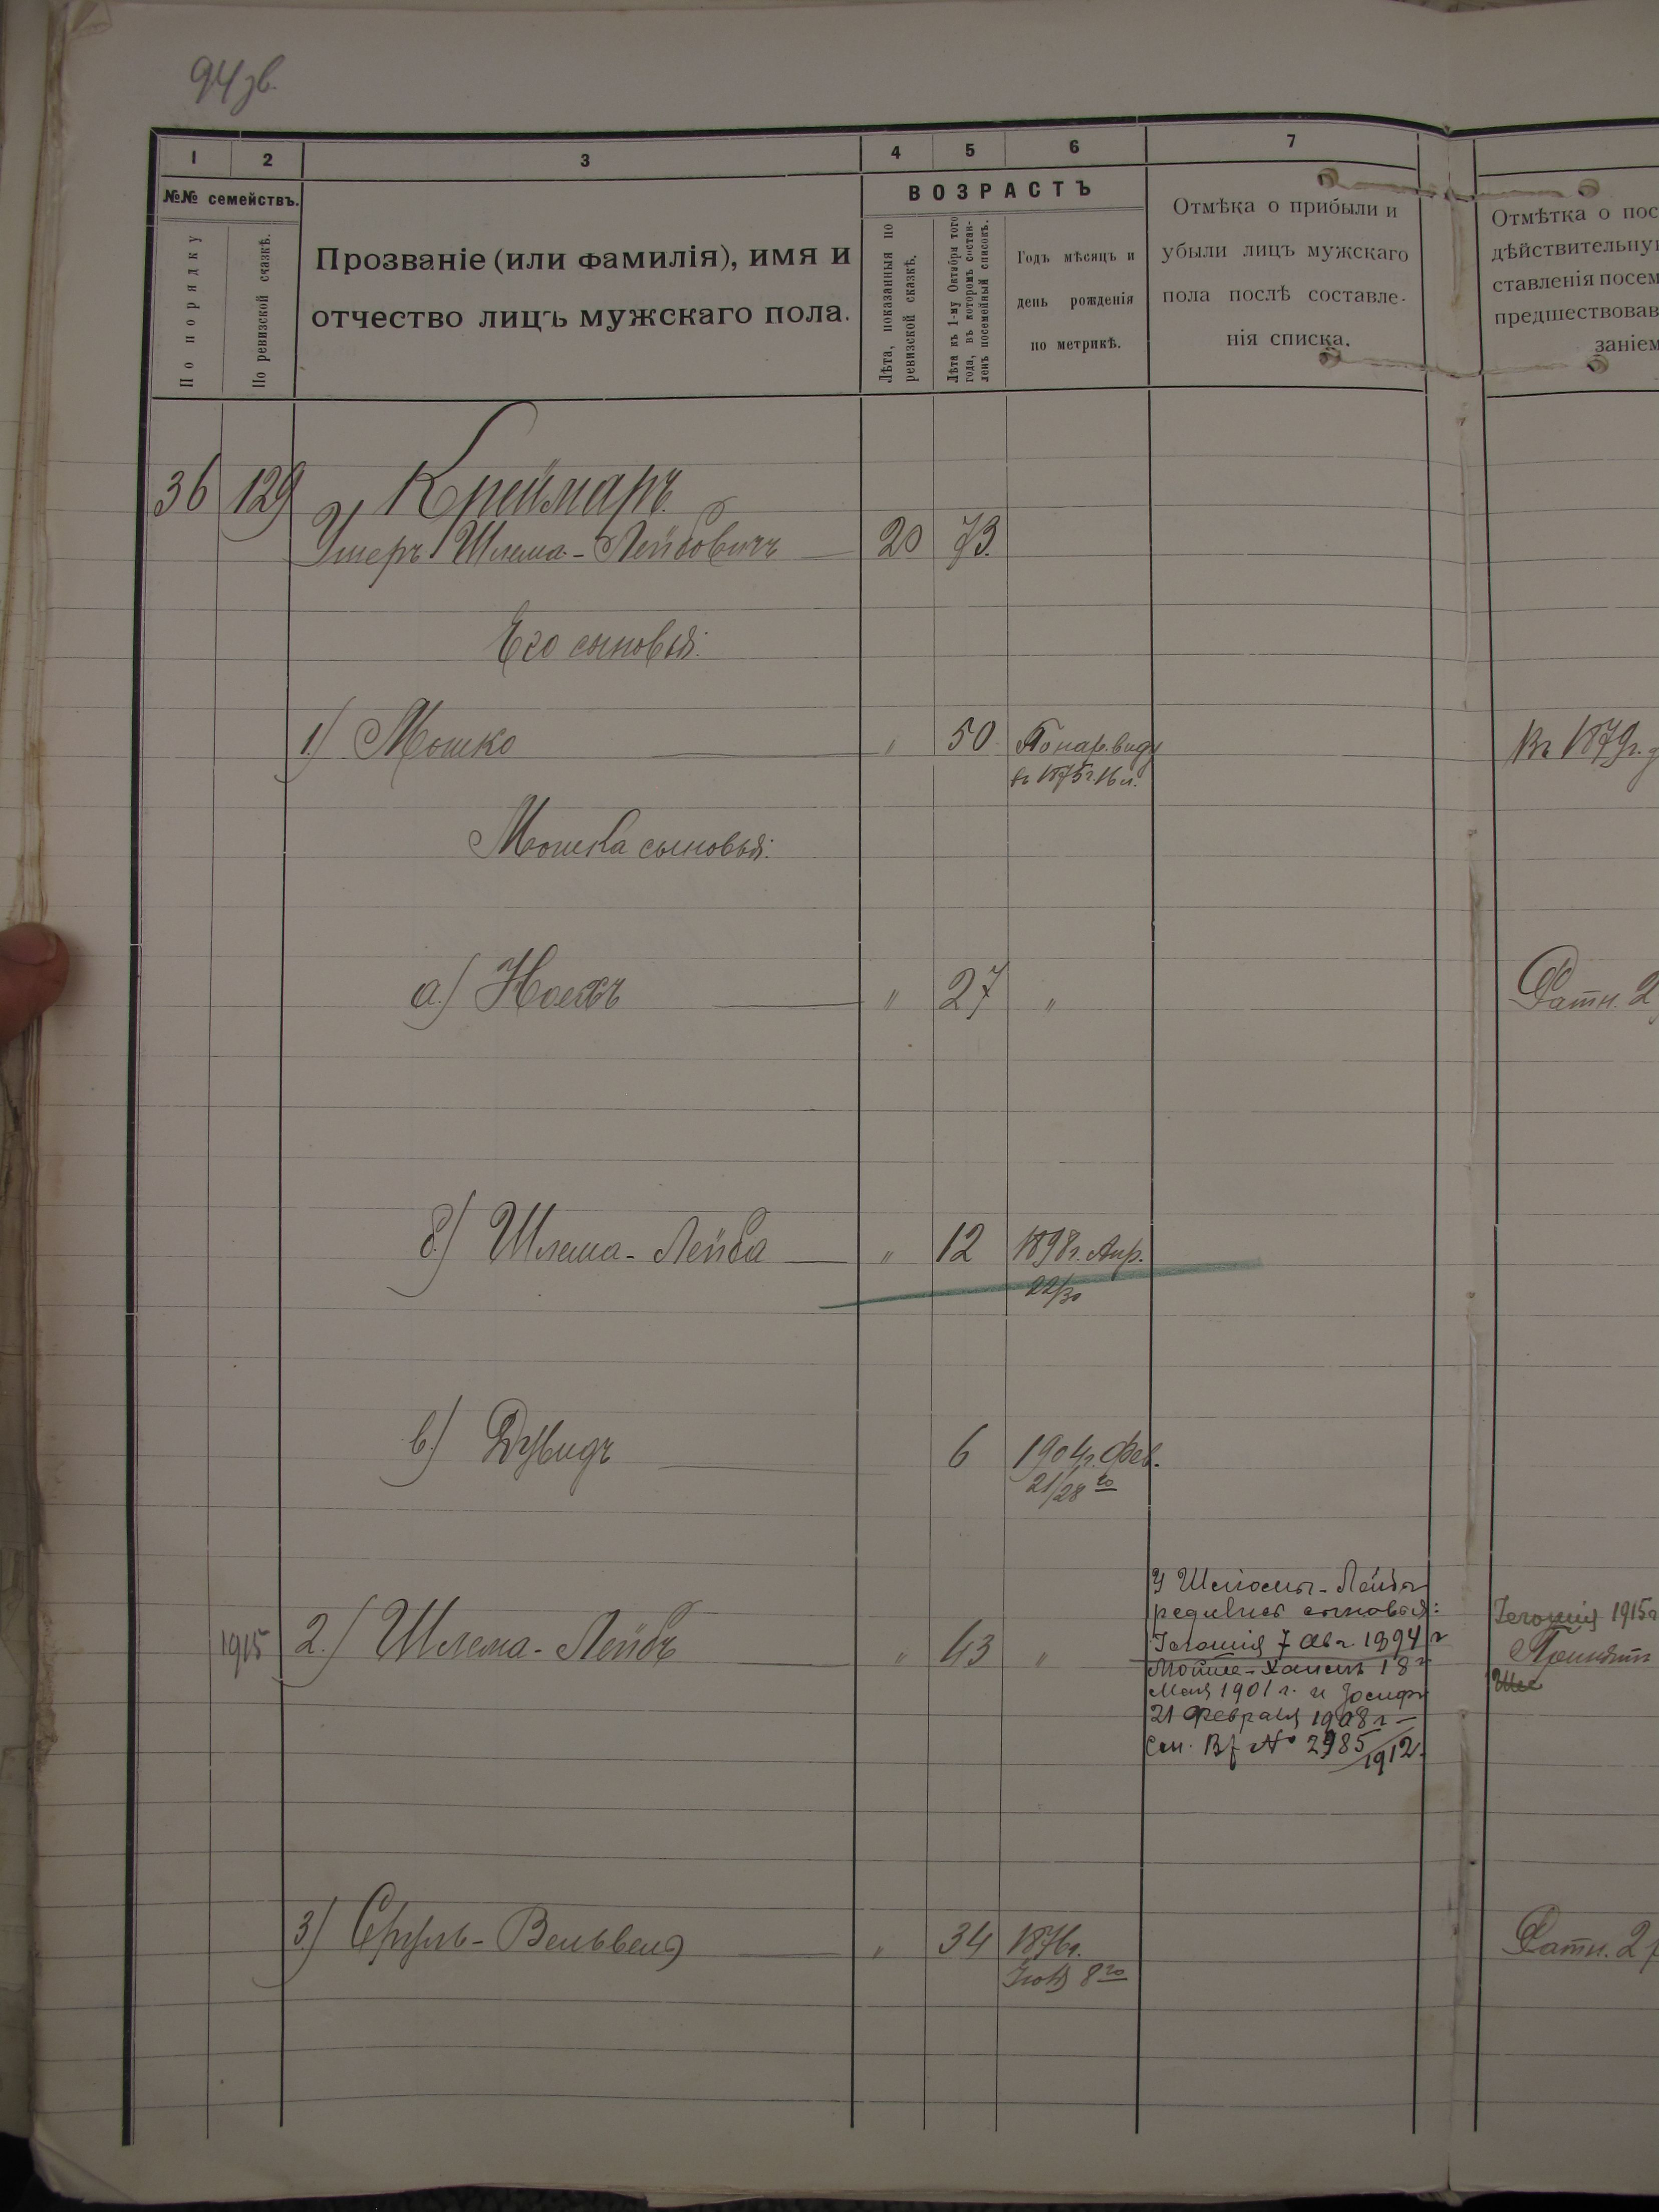 94 зв.
1 2 3 4 5 6 7
№№ семействъ.
По порядку
По ревизской сказкѣ.
Прозваніе (или фамилія), имя и
отчество лицъ мужскаго пола.
ВОЗРАСТЪ
Лѣта, показанныя по
ревизской сказкѣ.
Лѣта къ 1-му Октября того
года, въ которомъ состав-
ленъ посемейный списокъ.
Годъ мѣсяцъ и
день рожденія
по метрикѣ.
Отмѣка о прибыли и
убыли лицъ мужскаго
пола послѣ составле-
нія списка.
Отмѣтка о пос
дѣйствительную
ставленія посем
предшествовав
заніем
36 129 Креймаръ
Ушеръ Шлема-Лейбовичъ 20 73.
Его сыновья:
1) Мошко " 50 По нар. виду
въ 1875 г. 16 л.
Въ 1879 г.
Мошка сыновья:
а) Ноехъ " 27 "
Ратн. 2
б) Шлема-Лейба " 12 1898 г. Апр.
22/30
в) Дувидъ 6 1904 г. Фев.
21/28 го
1915 2.) Шлема-Лейбъ " 43 "
У Шлемы-Лейбы
родились сыновья:
7 Авг. 1894 г
Мойше- 18 г
Мая 1901 г. и Іосифъ
21 Февраля 1908 г —
См. Вх № 2985/1912.
1915 г
Принятъ
3.) Сруль-Вельвель " 34 1876 г.
Іюля 8 го
Ратн. 2